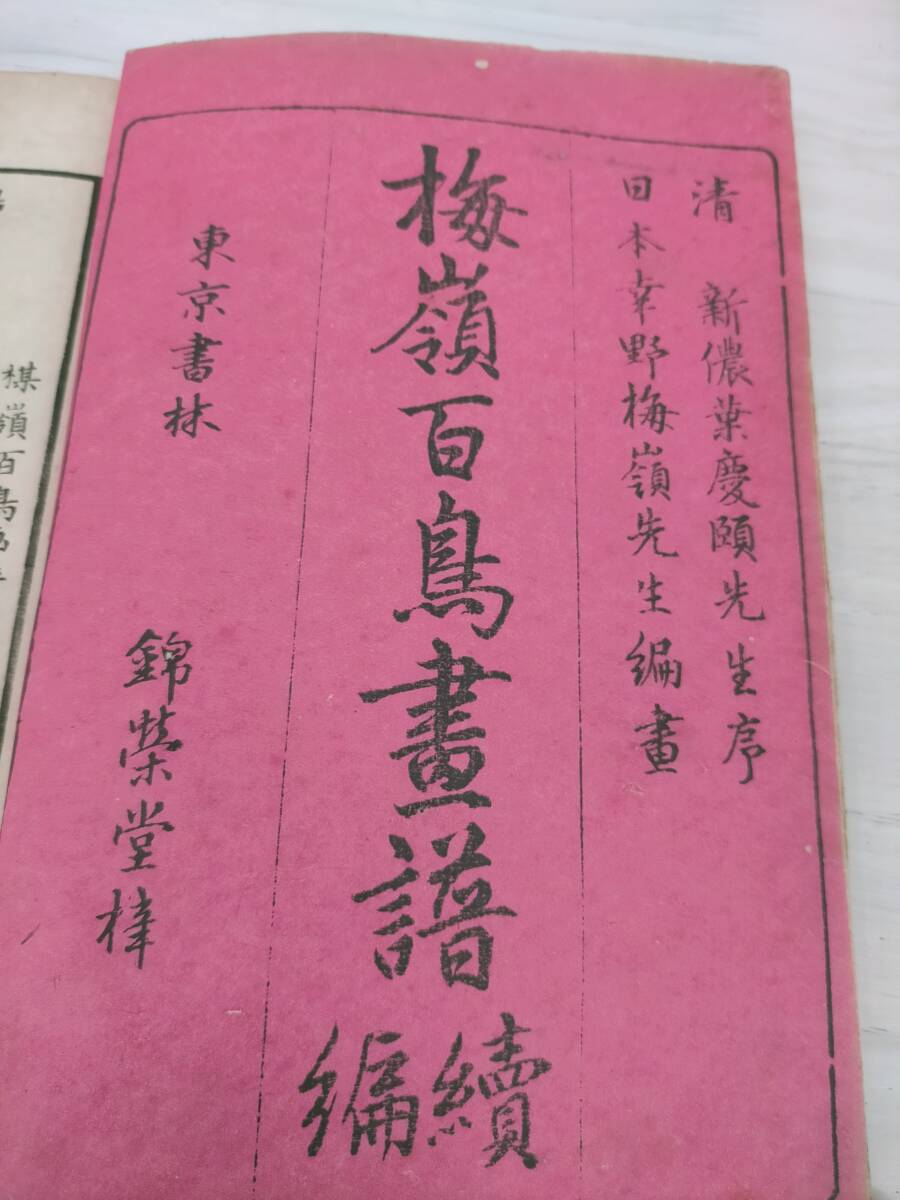 清 新儂葉慶頤先生序
日本幸野梅嶺先生編畫
梅嶺百鳥畫譜
續編
東京書林 錦榮堂梓
楳嶺百鳥